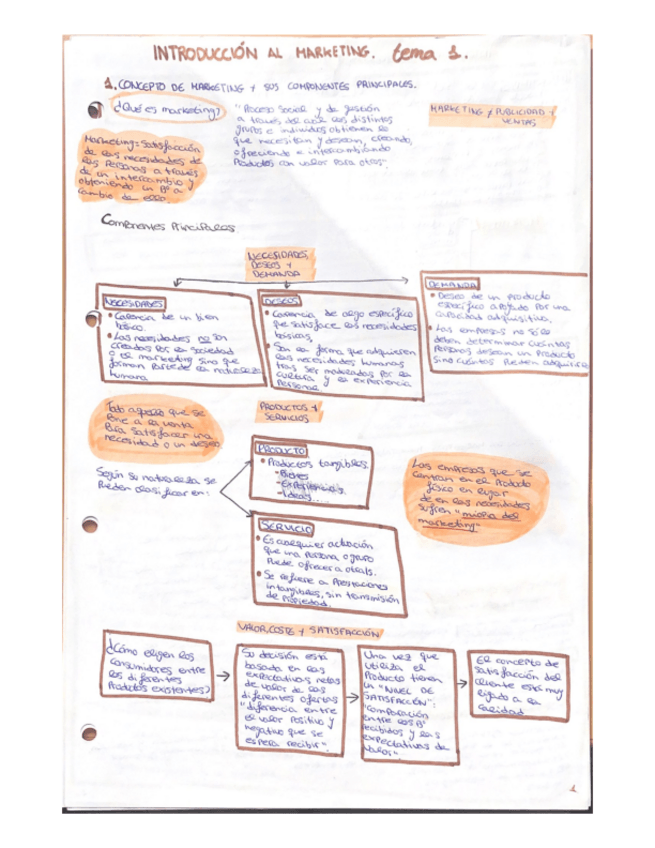 INTRODUCCIÓN AL MARKETING. tema 1.
1. CONCEPTO DE MARKETING Y SUS COMPONENTES PRINCIPALES.
¿Qué es marketing?
"Proceso social y de gestión
a través del cual los distintos
grupos e individuos obtienen lo
que necesitan y desean, creando,
ofreciendo e intercambiando
productos con valor para otros".
MARKETING ≠ PUBLICIDAD Y
VENTAS
Marketing = Satisfacción
de las necesidades de
las personas a través
de un intercambio y
obteniendo un Bº a
cambio de ello.
Componentes Principales
NECESIDADES,
DESEOS Y
DEMANDA
NECESIDADES
• Carencia de un bien
básico.
• Las necesidades no son
creadas por la sociedad
o el marketing sino que
forman parte de la naturaleza
humana
DESEOS
• Carencia de algo específico
que satisface las necesidades
básicas,
• Son la forma que adquieren
las necesidades humanas
tras ser moldeadas por la
cultura y la experiencia
personal
DEMANDA
• Deseo de un producto
específico apoyado por una
capacidad adquisitiva,
• Las empresas no sólo
deben determinar cuántas
personas desean un producto
sino cuántos pueden adquirirlo
Todo aquello que se
pone a la venta
para satisfacer una
necesidad o un deseo
PRODUCTOS Y
SERVICIOS
Según su naturaleza se
pueden clasificar en:
PRODUCTO
• Productos tangibles.
- Bienes
- Experiencias
- Ideas....
SERVICIO
• Es cualquier actuación
que una persona o grupo
puede ofrecer a otra/s.
• Se refiere a prestaciones
intangibles, sin transmisión
de propiedad.
Las empresas que se
centran en el producto
físico en lugar
de en las necesidades
sufren "miopía del
marketing"
VALOR, COSTE Y SATISFACCIÓN
¿Cómo eligen los
consumidores entre
los diferentes
productos existentes?
Su decisión está
basada en las
expectativas netas
de valor de las
diferentes ofertas
"diferencia entre
el valor positivo y
negativo que se
espera recibir".
Una vez que
utiliza el
producto tienen
un "NIVEL DE
SATISFACCIÓN":
"Comparación
entre los Bº
recibidos y las
expectativas de
valor".
El concepto de
satisfacción del
cliente está muy
ligado a la
calidad
1